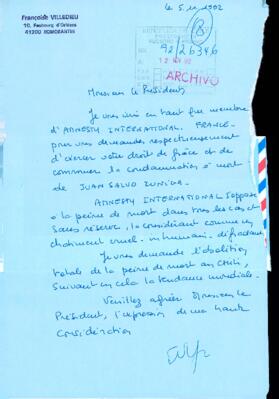 Françoise VILLEDIEU
10, Faubourg d'Orléans
41200 ROMORANTIN
le 5.11.1992
92/26346
12 NOV 92
ARCHIVO
Monsieur le Président
Je vous écris en tant que membre
d'AMNESTY INTERNATIONAL FRANCE
pour vous demander respectueusement
d'user votre droit de grâce et de
commuer la condamnation à mort
de JUAN SALVO ZUNIGA.
AMNESTY INTERNATIONAL s'oppose
à la peine de mort dans tous les cas et
sans réserve, la considérant comme un
châtiment cruel, inhumain, dégradant
Je vous demande l'abolition
totale de la peine de mort au Chili,
suivant en cela la tendance mondiale.
Veuillez agréer Monsieur le
Président, l'expression de ma haute
considération